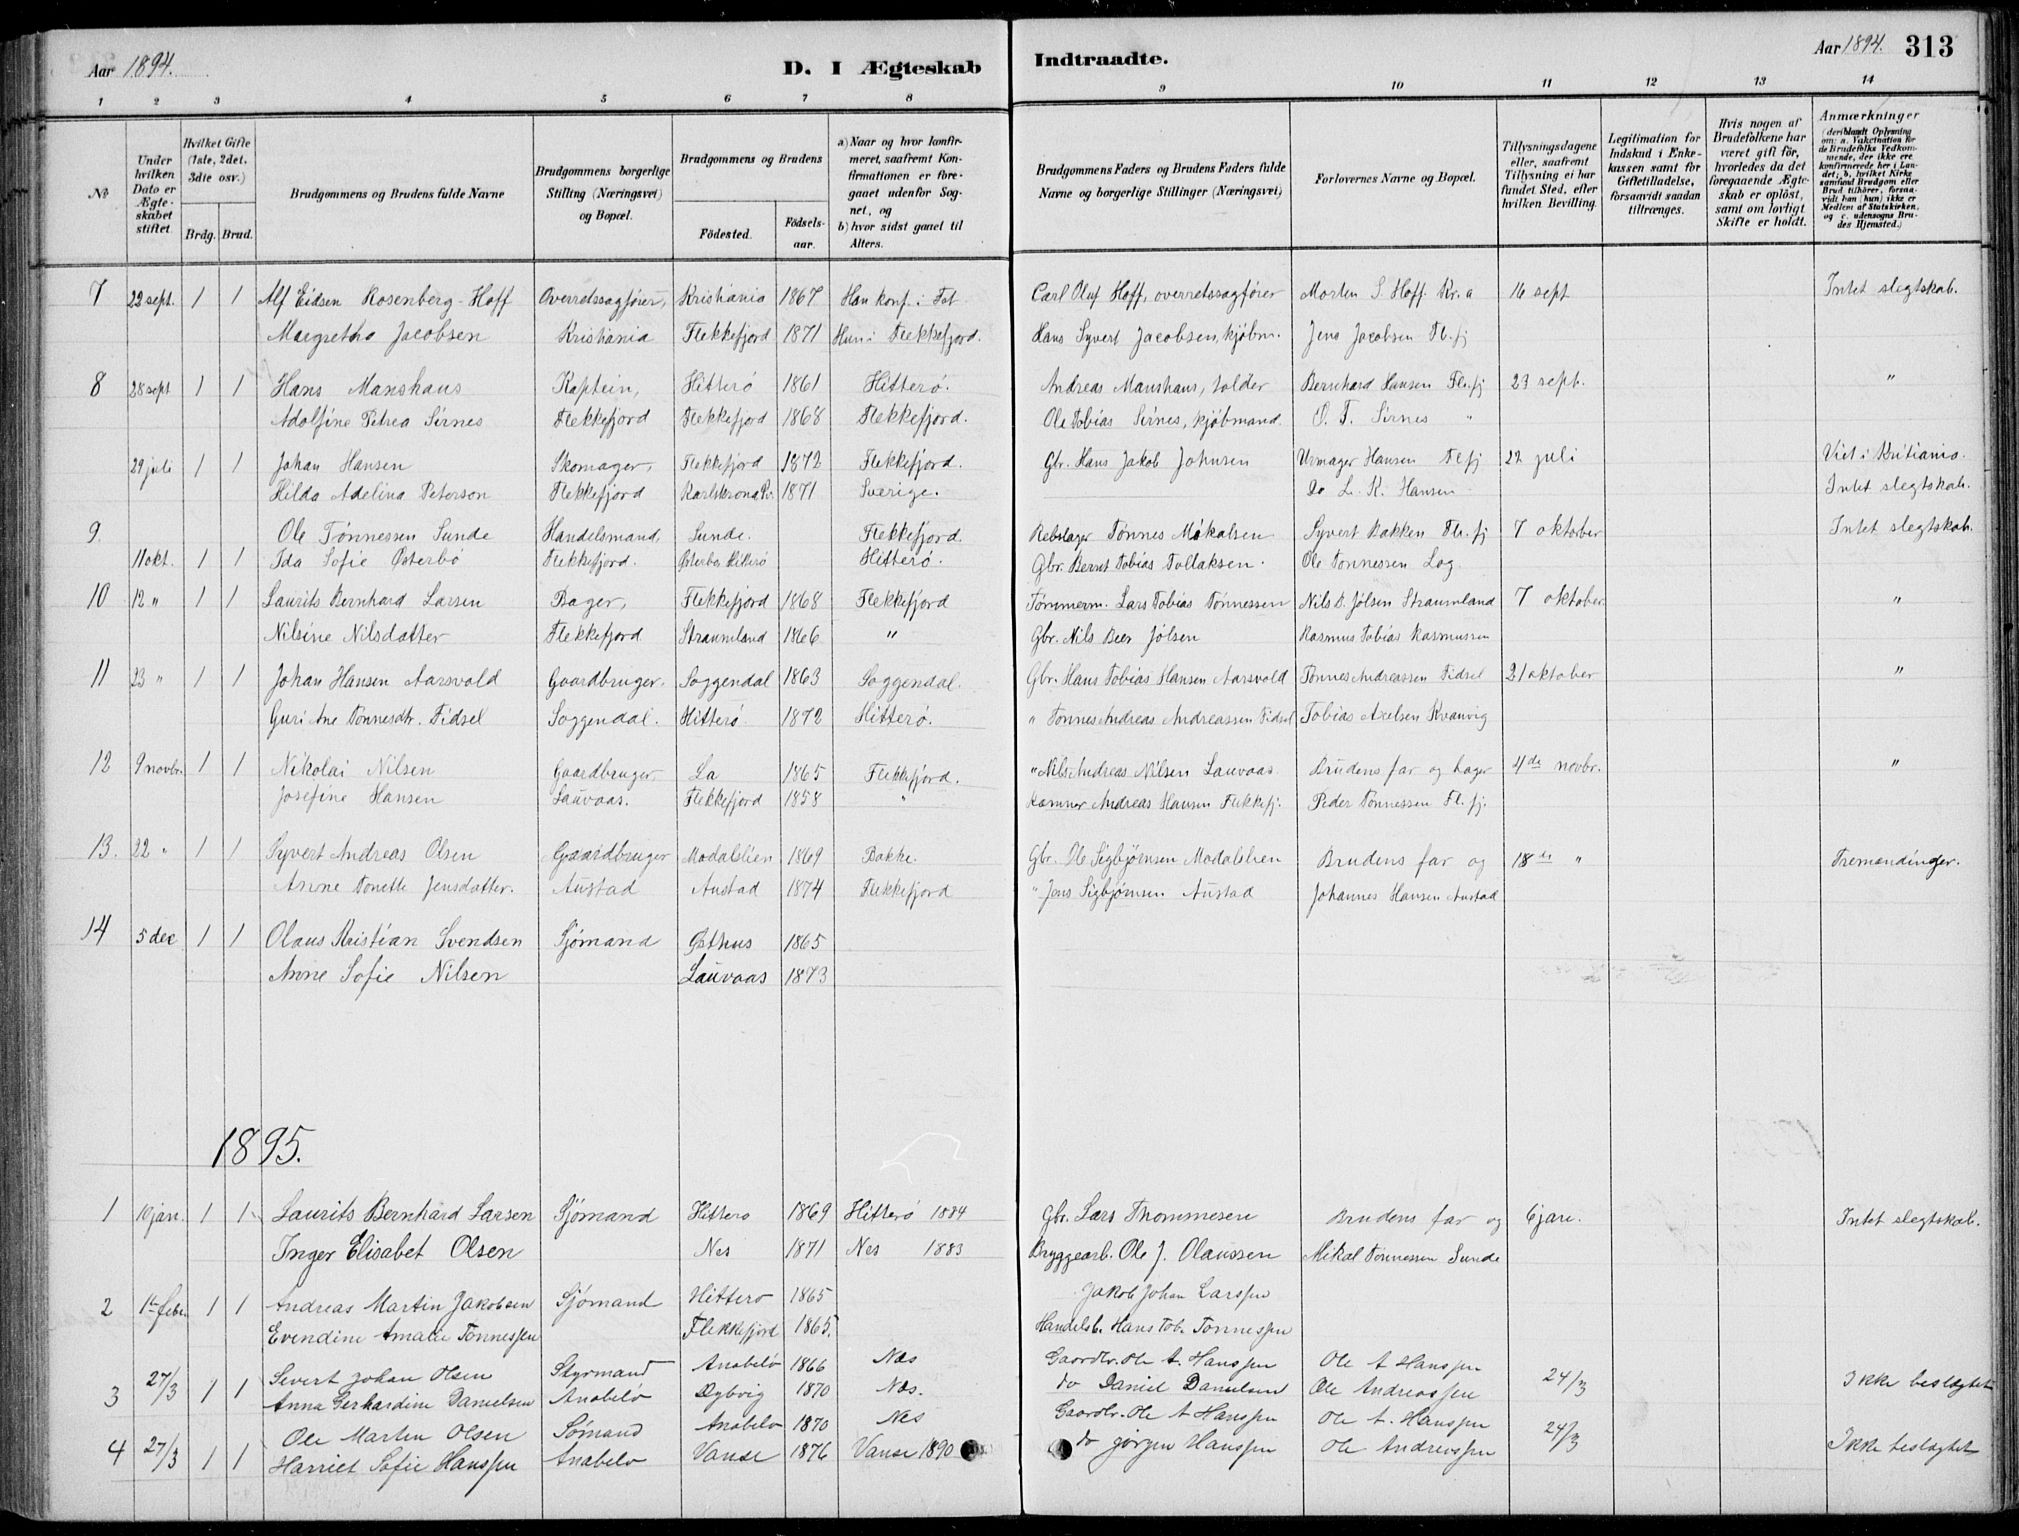 Aar 1894.
D. I Ægteskab Indtraadte.
Aar 1894. 313
1 2 3 4 5 6 7 8 9 10 11 12 13 14
No
Under hvilken Dato er Ægteskabet stiftet.
Hvilket Gifte (1ste, 2det, 3die osv.)
Brdg. Brud.
Brudgommens og Brudens fulde Navne
Brudgommens borgerlige Stilling (Næringsvei) og Bopæl.
Brudgommens og Brudens
Födested. Födselsaar.
a) Naar og hvor konfirmeret, saafremt Konfirmationen er foregaaet udenfor Sognet, og
b) hvor sidst gaaet til Alters.
Brudgommens Faders og Brudens Faders fulde Navne og borgerlige Stillinger (Næringsvei)
Forlovernes Navne og Bopæl.
Tillysningsdagene eller, saafremt Tillysning ei har fundet Sted, efter hvilken Bevilling.
Legitimation for Indskud i Enkekassen samt for Giftetilladelse, forsaavidt saadan tiltrænges.
Hvis nogen af Brudefolkene har været gift för, hvorledes da det foregaaende Ægteskab er oplöst, samt om lovligt Skifte er holdt.
Anmærkninger (deriblandt Oplysning om: a. Vakcination for de Brudefolks Vedkommende, der ikke ere konfirmerede her i Landet; b. hvilket Kirkesamfund Brudgom eller Brud tilhörer, forsaavidt han (hun) ikke er Medlem af Statskirken, og c. udensogns Brudes Hjemsted.)
7 22 sept. 1 1 Alf Eidsen Rosenberg-Hoff Overretssagfører, Kristiania 1867 Han konf. i Fet Carl Oluf Hoff, overretssagfører Morten S. Hoff Kr.a 16 sept Intet slegtskab.
Margretha Jacobsen Kristiania Flekkefjord 1871 Hun i Flekkefjord. Hans Syvert Jacobsen, kjøbm. Jens Jacobsen Fl.fj
8 28 sept 1 1 Hans Manshaus Kaptein, Hitterö 1861 Hitterö. Andreas Manshaus, tolder Bernhard Hansen Fle.fj 23 sept. "
Adolfine Petrea Sirnes Flekkefjord Flekkefjord 1868 Flekkefjord. Ole Tobias Sirnes, kjöbmand. O. T. Sirnes "
29 juli 1 1 Johan Hansen Skomager, Flekkefjord 1872 Flekkefjord. Gbr. Hans Jakob Johnsen Urmager Hansen Fl.fj 22 juli Viet i Kristiania.
Hilda Adelina Peterson Flekkefjord Karlskrona 1871 Sverige. Do L. K. Hansen Intet slegtskab.
9. Ole Tønnessen Sunde Handelsmand, Sunde. Flekkefjord. Rebslager Tønnes Mikalsen Syvert Bakken Fle.fj 7 oktober Intet slegtskab.
11 okt. 1 1 Ida Sofie Østerbö Flekkefjord. Østerbö Hitterö Hitterö. Gbr. Bernt Tobias Tollaksen. Ole Tønnessen Log
10 12 " 1 1 Laurits Bernhard Larsen Bager, Flekkefjord 1868 Flekkefjord Tømmerm. Lars Tobias Tønnessen Nils B. Jølsen Straumland 7 oktober "
Nilsine Nilsdatter Flekkefjord Straumland 1866 " Gbr. Nils Beer Jølsen Rasmus Tobias Rasmussen
11 23 " 1 1 Johan Hansen Aarsvold Gaardbruger. Soggendal 1863 Soggendal. Gbr. Hans Tobias Hansen Aarsvold Tønnes Andreassen Fidsel 21 oktober "
Guri Ane Tønnesdtr. Fidsel Soggendal. Hitterö 1872 Hitterö. " Tønnes Andreas Andreassen Fidsel Tobias Axelsen Kvanvig
12 9 novbr. 1 1 Nikolai Nilsen Gaardbruger La 1865 Flekkefjord. " Nils Andreas Nilsen Lauvaas Brudens far og bager 4de novbr. "
Josefine Hansen Lauvaas. Flekkefjord 1858 " Andreas Hansen Flekkefj. Peder Tønnessen Fl.fj.
13. 22 " 1 1 Syvert Andreas Olsen Gaardbruger Modalslien 1869 Bakke. Gbr. Ole Sigbjørnsen Modalslien Brudens far og 18de " Tremændinger.
Anne Tonette Jensdatter. Austad Austad 1874 Flekkefjord " Jens Sigbjørnsen Austad Johannes Hansen Austad
14 5 dec 1 1 Olaus Kristian Svendsen Sjömand Østhus 1865
Anne Sofie Nilsen Lauvaas 1873
1895.
1 10 jan. 1 1 Laurits Bernhard Larsen Sjömand Hitterø 1869 Hitterö 1884 Gbr. Lars Thommesen Brudens far og 6 jan. Intet slegtskab.
Inger Elisabet Olsen Nes 1871 Nes 1883 Bryggearb. Ole J. Olaussen Mikal Tønnessen Sunde
2 1te febr. 1 1 Andreas Martin Jakobsen Sjömand Hitterø 1865 Jakob Johan Larssen
Evendine Amalie Tønnessen Flekkefjord 1865. Handelsb. Hans Tob. Tønnessen
3 27/3 1 1 Severt Johan Olsen Styrmand Anabelø 1866 Næs Gaardbr. Ole A. Hanssen Ole A Hanssen 24/3 Ikke beslægtet
Anna Gerhardine Danielsen Anabelø Dybvig 1870 Næs. do Daniel Danielsen Ole Andreassen
4 27/3 1 1 Ole Martin Olsen Sømand Anabelø 1870 Nes Gaardbr. Ole A Hanssen Ole A. Hanssen 24/3 Ikke beslægtet
Harriet Sofie Hanssen Anabelø Vanse 1876 Vanse 1890 do Jørgen Hanssen Ole Andreassen